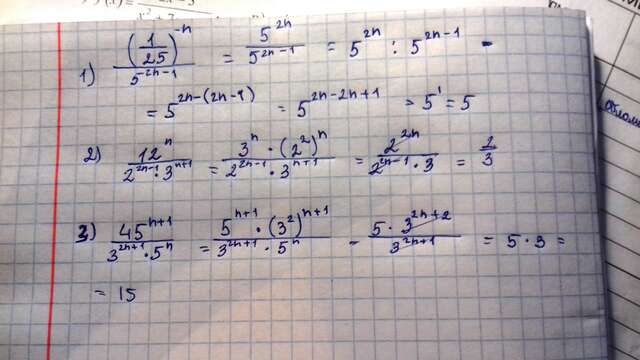 1) \frac{(\frac{1}{25})^{-n}}{5^{-2n-1}} = \frac{5^{2n}}{5^{2n-1}} = 5^{2n} : 5^{2n-1} -
= 5^{2n-(2n-1)} = 5^{2n-2n+1} = 5^1 = 5
2) \frac{12^n}{2^{2n-1} \cdot 3^{n+1}} = \frac{3^n \cdot (2^2)^n}{2^{2n-1} \cdot 3^{n+1}} = \frac{2^{2n}}{2^{2n-1} \cdot 3} = \frac{2}{3}
3) \frac{45^{n+1}}{3^{2n+1} \cdot 5^n} = \frac{5^{n+1} \cdot (3^2)^{n+1}}{3^{2n+1} \cdot 5^n} - \frac{5 \cdot 3^{2n+2}}{3^{2n+1}} = 5 \cdot 3 =
= 15